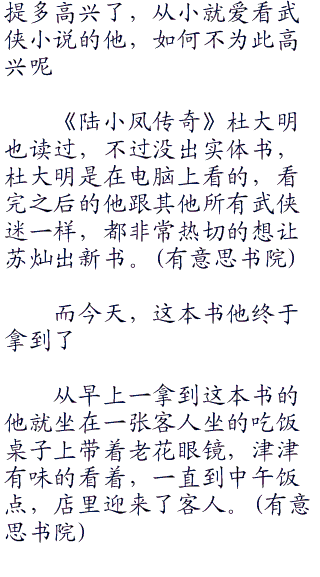 提多高兴了，从小就爱看武
侠小说的他，如何不为此高
兴呢
《陆小凤传奇》杜大明
也读过，不过没出实体书，
杜大明是在电脑上看的，看
完之后的他跟其他所有武侠
迷一样，都非常热切的想让
苏灿出新书。(有意思书院)
而今天，这本书他终于
拿到了
从早上一拿到这本书的
他就坐在一张客人坐的吃饭
桌子上带着老花眼镜，津津
有味的看着，一直到中午饭
点，店里迎来了客人。(有意
思书院)